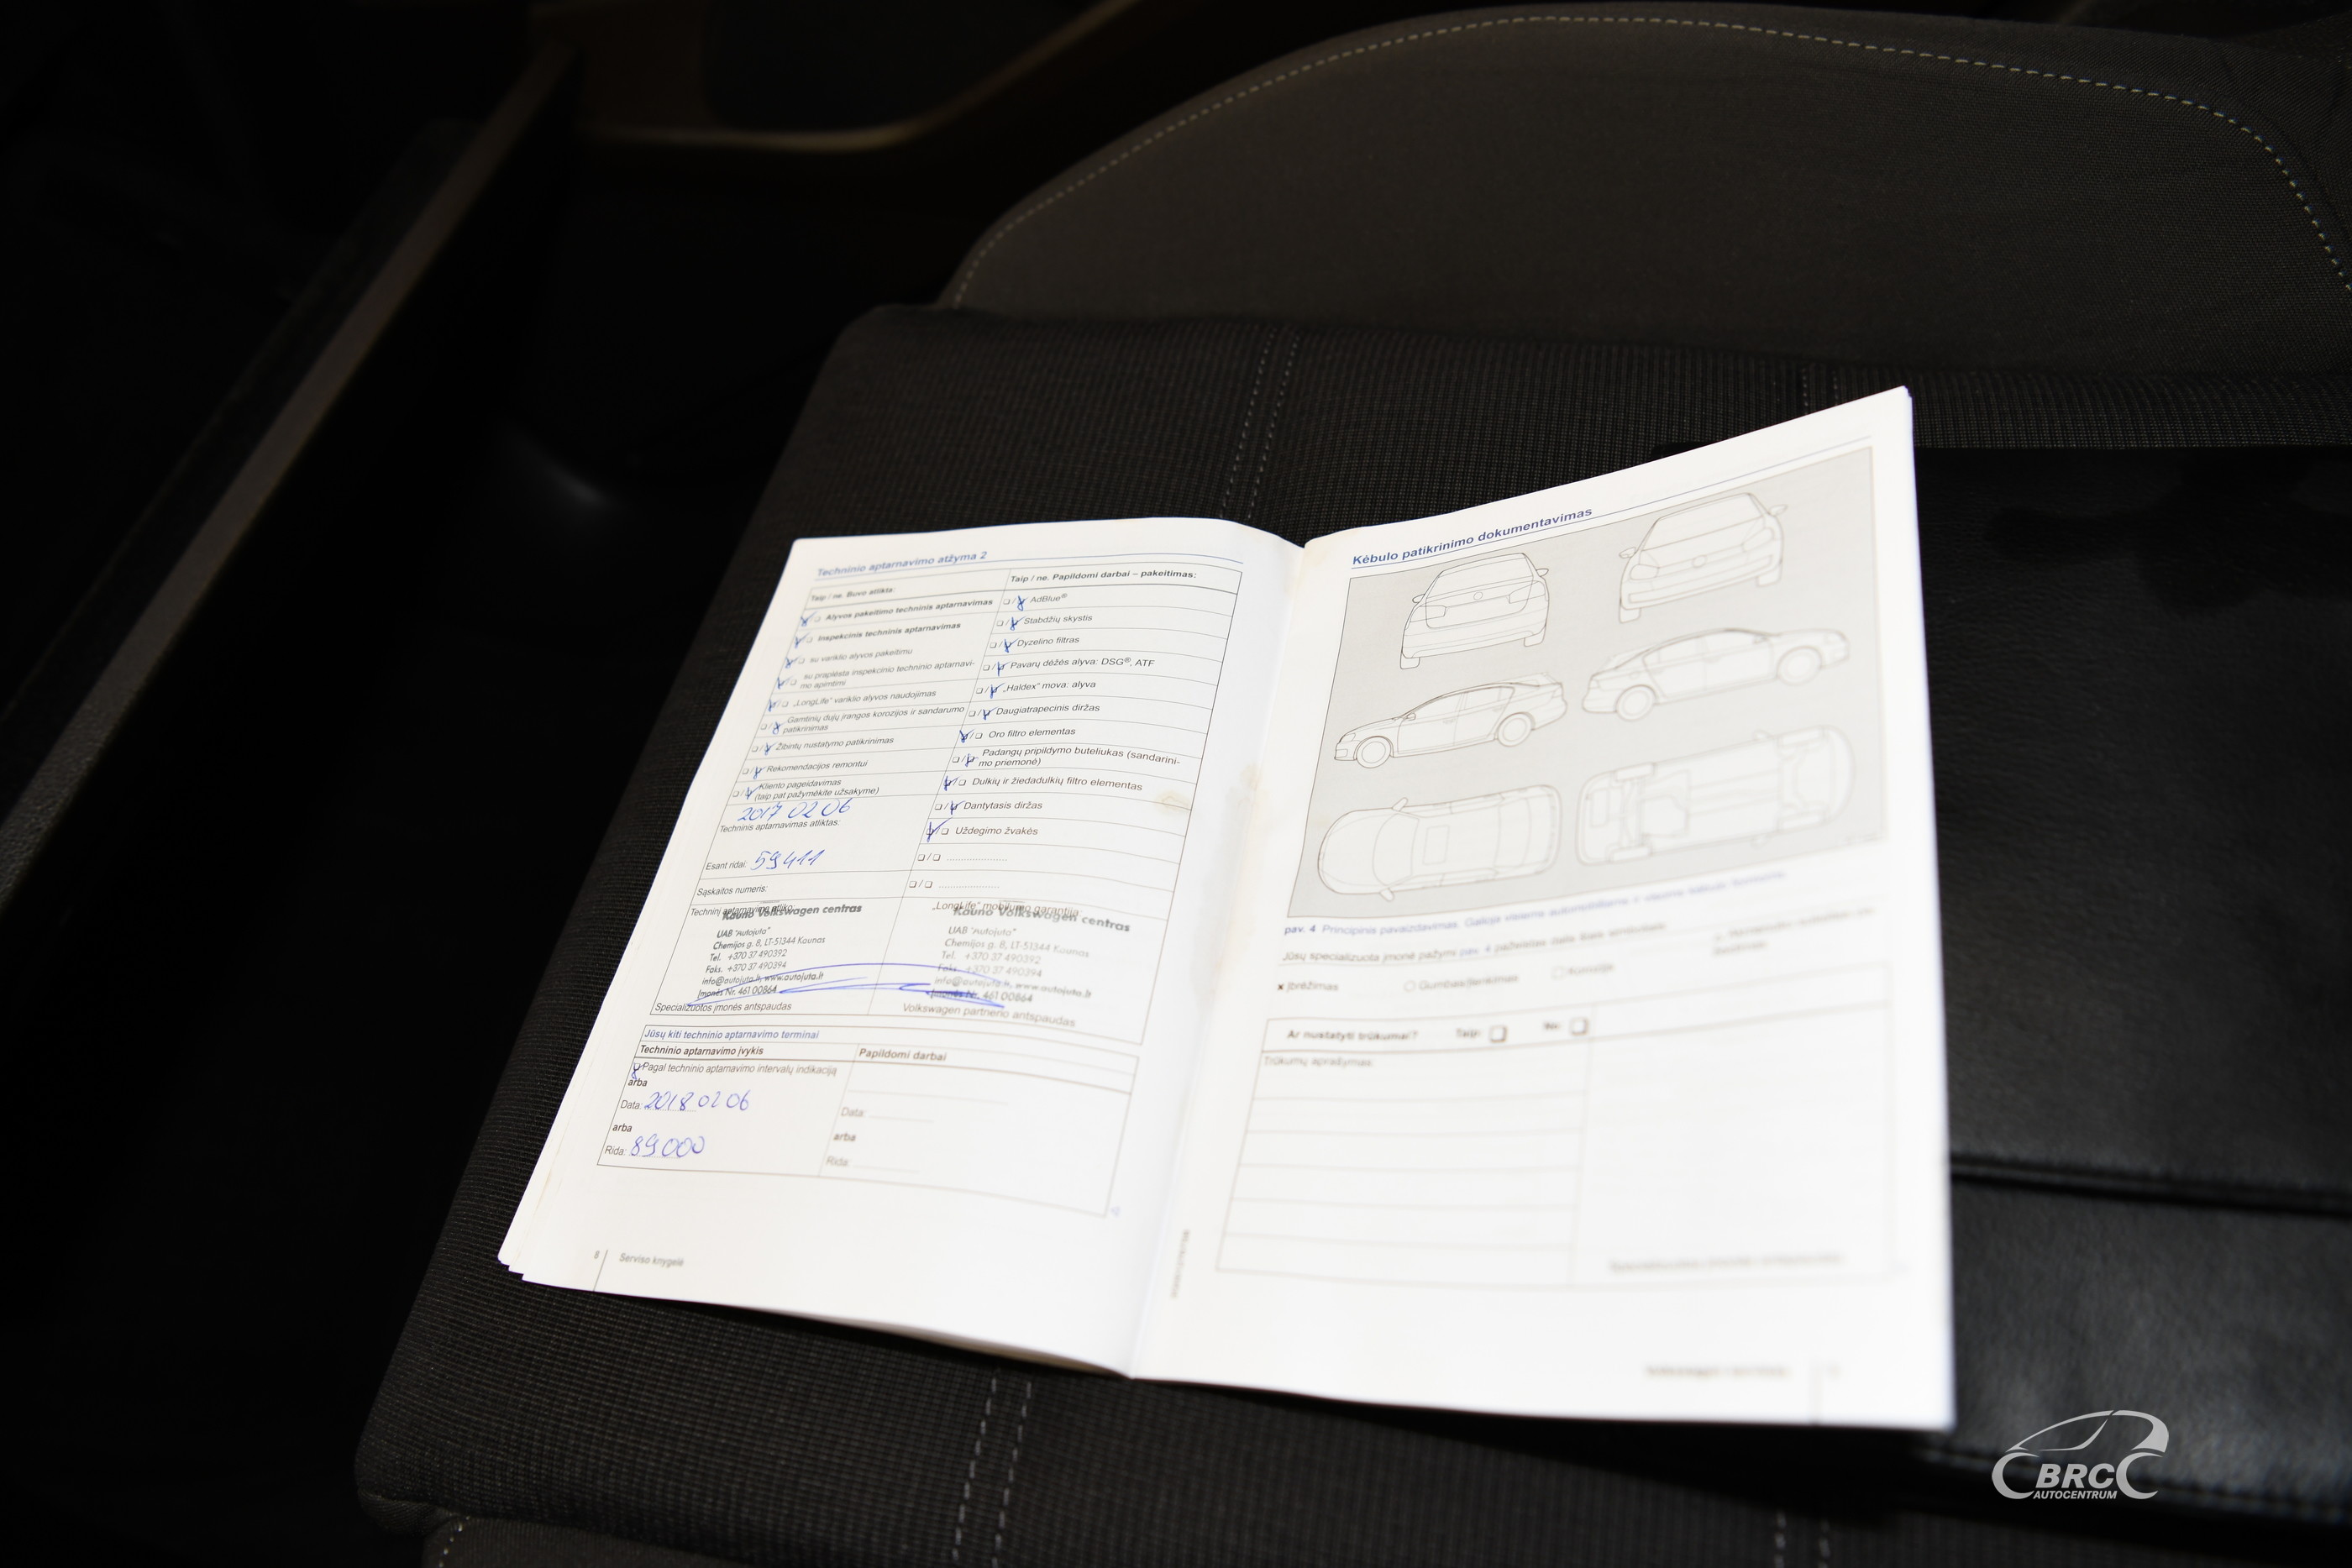 Techninio aptarnavimo atžyma 2
Taip / ne. Buvo atlikta:
Alyvos pakeitimo techninis aptarnavimas
Inspekcinis techninis aptarnavimas
su variklio alyvos pakeitimu
su praplėsta inspekcinio techninio aptarnavi-
mo apimtimi
„LongLife“ variklio alyvos naudojimas
Gamtinių dujų įrangos korozijos ir sandarumo
patikrinimas
Žibintų nustatymo patikrinimas
Rekomendacijos remontui
Kliento pageidavimas
(taip pat pažymėkite užsakyme)
2017 02 06
Techninis aptarnavimas atliktas:
Esant ridai: 59411
Sąskaitos numeris:
Techninį aptarnavimą atliko:
Kauno Volkswagen centras
UAB "Autojuta"
Chemijos g. 8, LT-51344 Kaunas
Tel. +370 37 490392
Faks. +370 37 490394
info@autojuta.lt, www.autojuta.lt
Įmonės Nr. 461 00864
Specializuotos įmonės antspaudas
Taip / ne. Papildomi darbai – pakeitimas:
AdBlue®
Stabdžių skystis
Dyzelino filtras
Pavarų dėžės alyva: DSG®, ATF
„Haldex“ mova: alyva
Daugiatrapecinis diržas
Oro filtro elementas
Padangų pripildymo buteliukas (sandarini-
mo priemonė)
Dulkių ir žiedadulkių filtro elementas
Dantytasis diržas
Uždegimo žvakės
„LongLife“ mobilumo garantija:
Kauno Volkswagen centras
UAB "Autojuta"
Chemijos g. 8, LT-51344 Kaunas
Tel. +370 37 490392
Faks. +370 37 490394
info@autojuta.lt, www.autojuta.lt
Įmonės Nr. 461 00864
Volkswagen partnerio antspaudas
Jūsų kiti techninio aptarnavimo terminai
Techninio aptarnavimo įvykis
Papildomi darbai
Pagal techninio aptarnavimo intervalų indikaciją
arba
Data: 2018 02 06
arba
Rida: 89000
Data:
arba
Rida:
8 Serviso knygelė
Kėbulo patikrinimo dokumentavimas
pav. 4 Principinis pavaizdavimas. Galioja visiems automobiliams ir visiems kėbulo
Jūsų specializuota įmonė pažymi pav. 4 pažeistas
x Įbrėžimas
Gumbas/įlenkimas
Korozija
Ar nustatyti trūkumai? Taip: Ne:
Trūkumų aprašymas:
BRC
AUTOCENTRUM